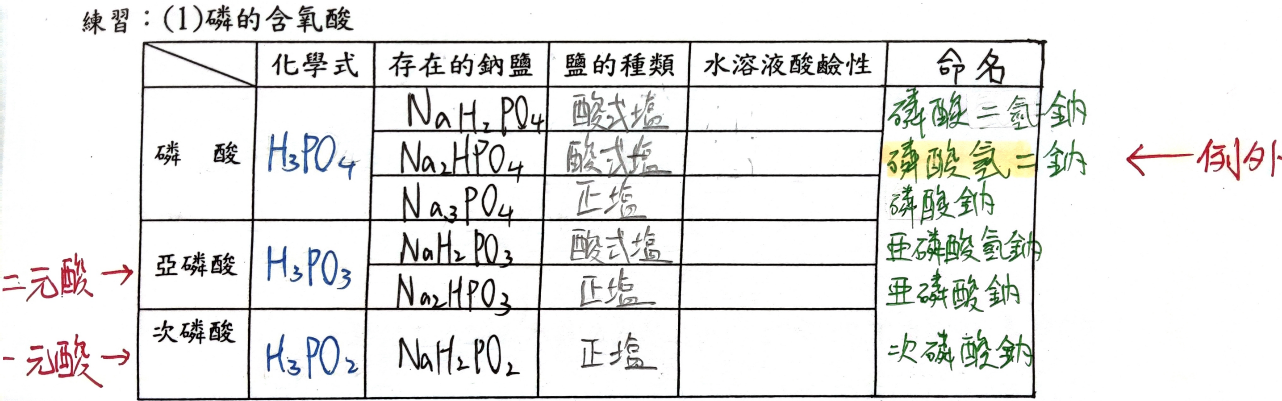 練習：(1)磷的含氧酸
化學式 存在的鈉鹽 鹽的種類 水溶液酸鹼性 命名
磷酸 H₃PO₄ NaH₂PO₄ 酸式塩 磷酸二氫鈉
Na₂HPO₄ 酸式塩 磷酸氫二鈉 ←例外
Na₃PO₄ 正塩 磷酸鈉
二元酸→ 亞磷酸 H₃PO₃ NaH₂PO₃ 酸式塩 亞磷酸氫鈉
Na₂HPO₃ 正塩 亞磷酸鈉
一元酸→ 次磷酸 H₃PO₂ NaH₂PO₂ 正塩 次磷酸鈉